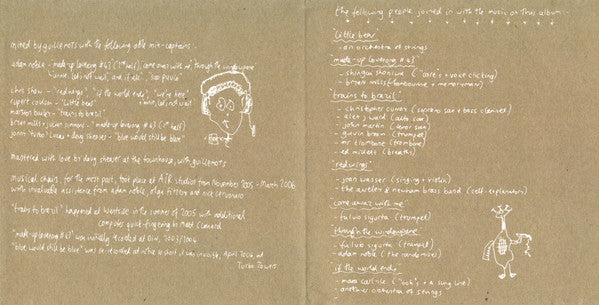 mixed by guillemots with the following able mix-captains:
adam noble - "made-up lovesong #43" (1st half), "come away with me", "through the windowpane"
"annie, let's not wait", and, if alc., "sao paulo"
chris shaw - "redwings", "if the world ends", "we're here"
rupert coulson - "little bear"
mortgon barber - "trains to brazil"
brian mills + adam - "made-up lovesong #43 (2nd half)
jonny "turbo" lucas + doug shearer - "blue would still be blue"
mastered with love by doug shearer at the townhouse, with guillemots
musical chairs, for the most part, took place at AIR studios from November 2005 - March 2006
with invaluable assistance from adam noble, olga fitzroy and nick cervonaro
"trains to brazil" happened at Westside in the summer of 2005 with additional
computer quick-fingering by Matt
"made-up lovesong #43" was initially recorded at 2003/2004
"blue would still be blue" was at
the following people joined in with the music on this album:-
"little bear"
- an orchestra of strings
"made-up lovesong #43"
- shingai shoniwa ("core"s + voice clicking)
- brian mills
"trains to brazil"
- christopher cundy (soprano sax + bass clarinet)
- alex ward (alto sax)
- john martin (tenor sax)
- gavin broom (trumpet)
- mr trombone (trombone)
- ed
"redwings"
- joan wasser (singing + violin)
- the aveley & newham brass band (self-explanatory)
come away with me
- fulvio sigurta (trumpet)
through the windowpane
- fulvio sigurta (trumpet)
- adam noble (the randomiser)
if the world ends
- mara carlyle ("ooh"s + a sung line)
- another orchestra of strings